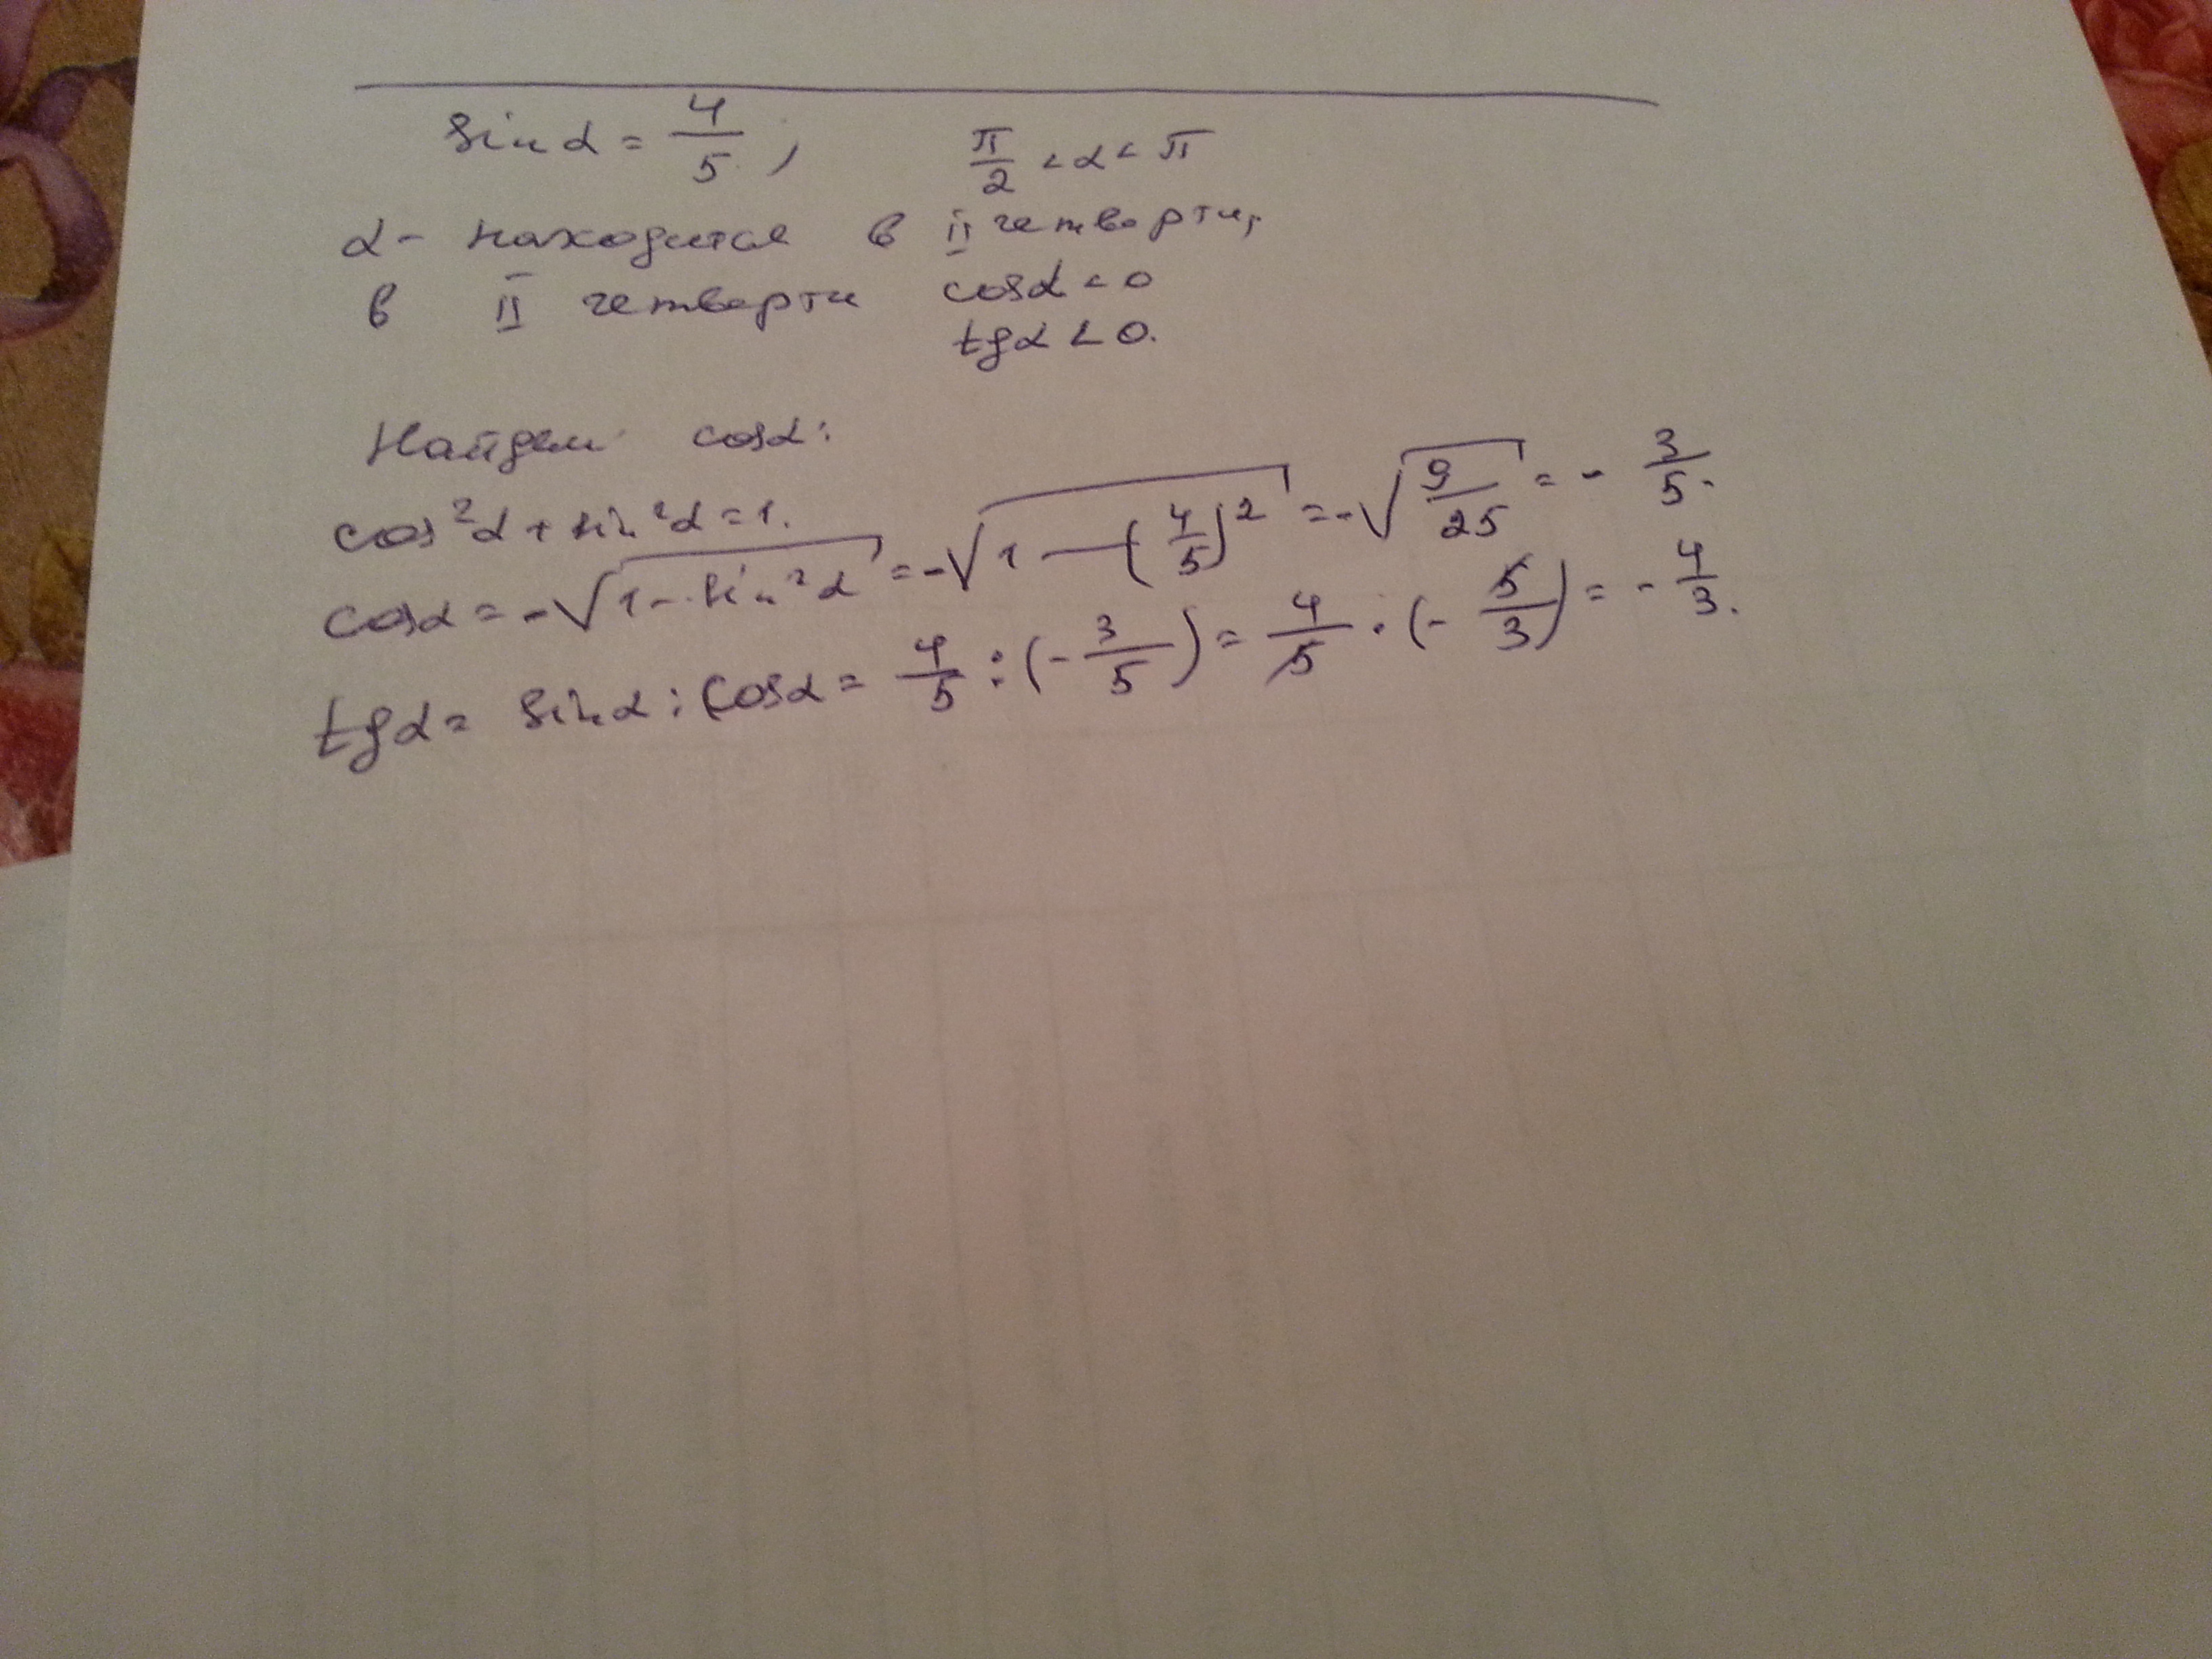 sin α = 4/5, π/2 < α < π
α - находится в II четверти,
в II четверти cos α < 0
tg α < 0.
Найдем cos α:
cos²α + sin²α = 1.
cos α = -√(1 - sin²α) = -√(1 - (4/5)²) = -√(9/25) = - 3/5.
tg α = sin α : cos α = 4/5 : (- 3/5) = 4/5 · (- 5/3) = - 4/3.